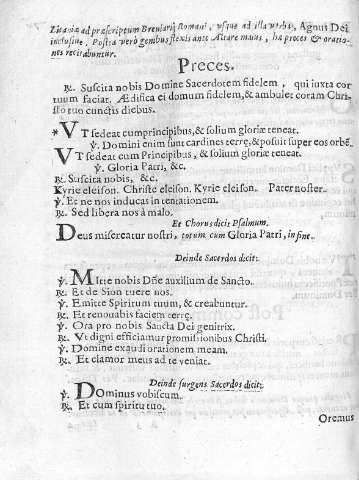 Litaniæ ad præscriptum Breuiarij Romani, vsque ad illa verba, Agnus Dei
inclusiue, Postea verò genibus flexis ante Altare maius, hæ preces & oratio-
nes recitabuntur.
Preces.
℟. Suscita nobis Domine Sacerdotem fidelem, qui iuxta cor
tuum faciat. Ædifica ei domum fidelem, & ambulet coram Chri-
sto tuo cunctis diebus.
*VT sedeat cum principibus, & solium gloriæ teneat.
℣. Domini enim sunt cardines terrę, & posuit super eos orbẽ.
VT sedeat cum Principibus, & solium gloriæ teneat.
℣. Gloria Patri, &c.
℟. Suscita nobis, &c.
Kyrie eleison. Christe eleison. Kyrie eleison. Pater noster.
℣. Et ne nos inducas in tentationem.
℟. Sed libera nos à malo.
Et Chorus dicit Psalmum.
Deus misereatur nostri, totum cum Gloria Patri, in fine.
Deinde Sacerdos dicit.
℣. Mitte nobis Dñe auxilium de Sancto.
℟. Et de Sion tuere nos.
℣. Emitte Spiritum tuum, & creabuntur.
℟. Et renouabis faciem terrę.
℣. Ora pro nobis Sancta Dei genitrix.
℟. Vt digni efficiamur promissionibus Christi.
℣. Domine exaudi orationem meam.
℟. Et clamor meus ad te veniat.
Deinde surgens Sacerdos dicit.
℣. Dominus vobiscum.
℟. Et cum spiritu tuo.
Oremus